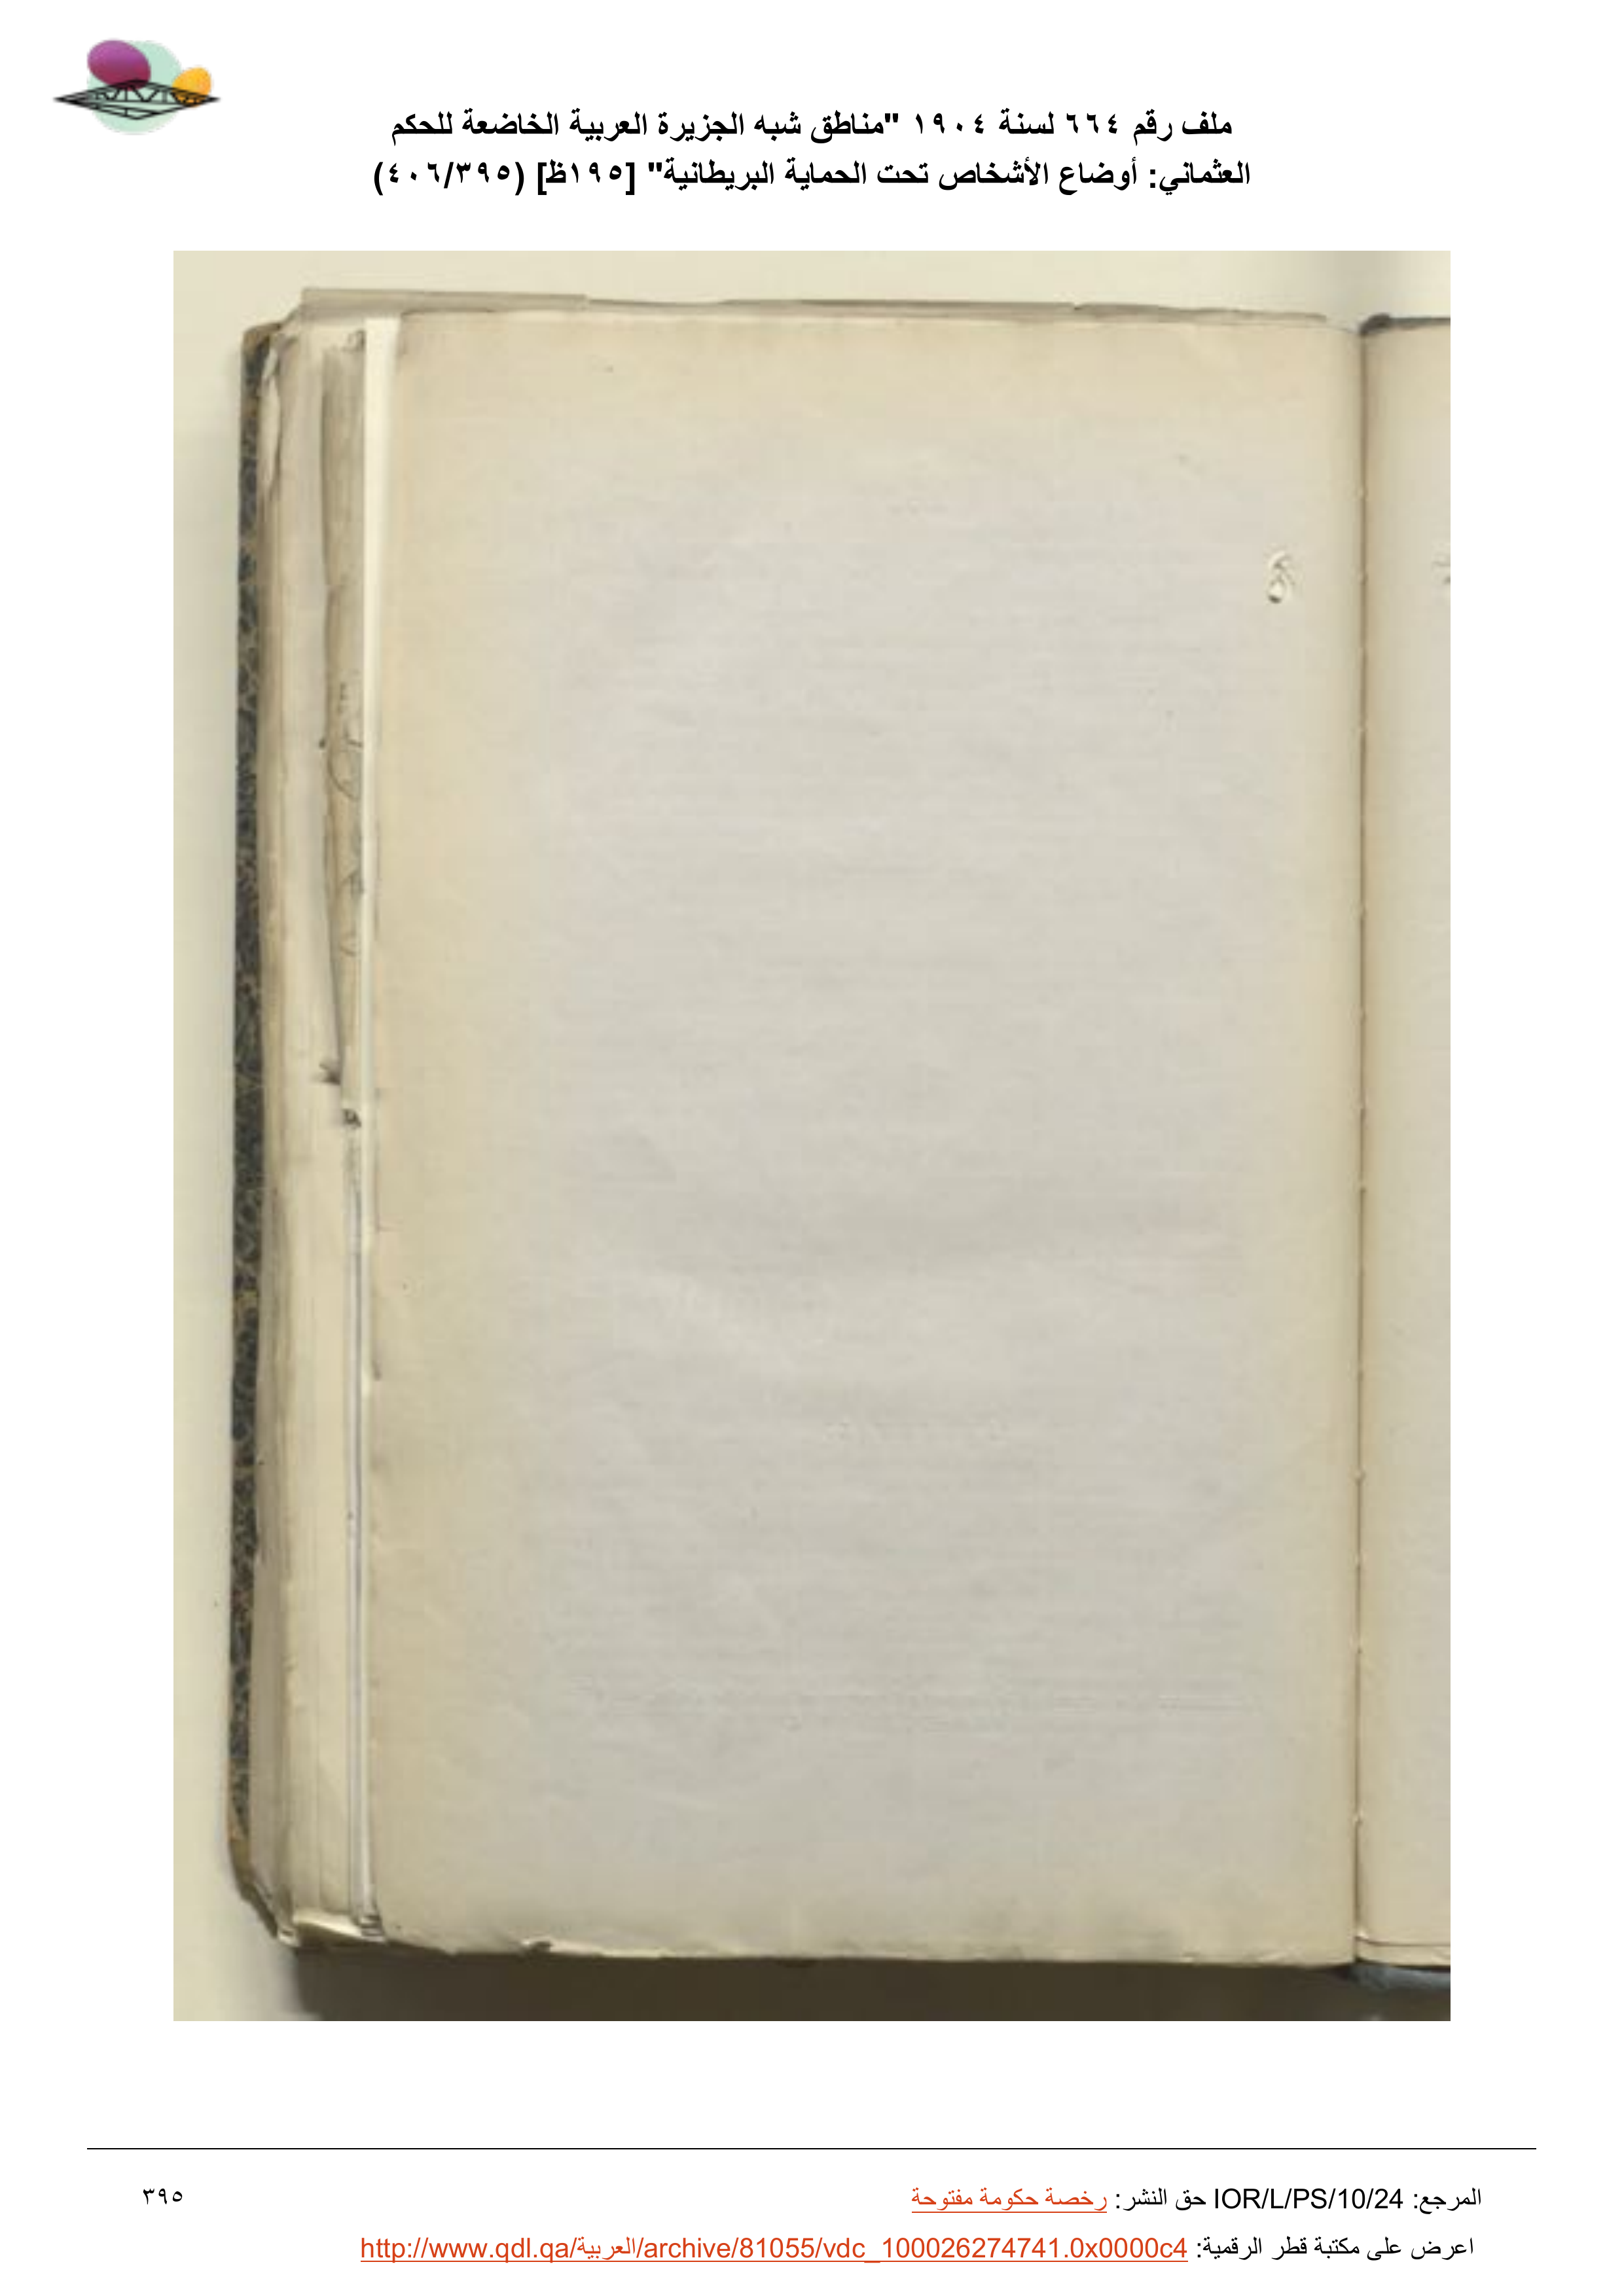 ملف رقم ٦٦٤ لسنة ١٩٠٤ "مناطق شبه الجزيرة العربية الخاضعة للحكم
العثماني: أوضاع الأشخاص تحت الحماية البريطانية" [١٩٥ظ] (٤٠٦/٣٩٥)
المرجع: IOR/L/PS/10/24 حق النشر: رخصة حكومة مفتوحة
٣٩٥
اعرض على مكتبة قطر الرقمية: http://www.qdl.qa/العربية/archive/81055/vdc_100026274741.0x0000c4